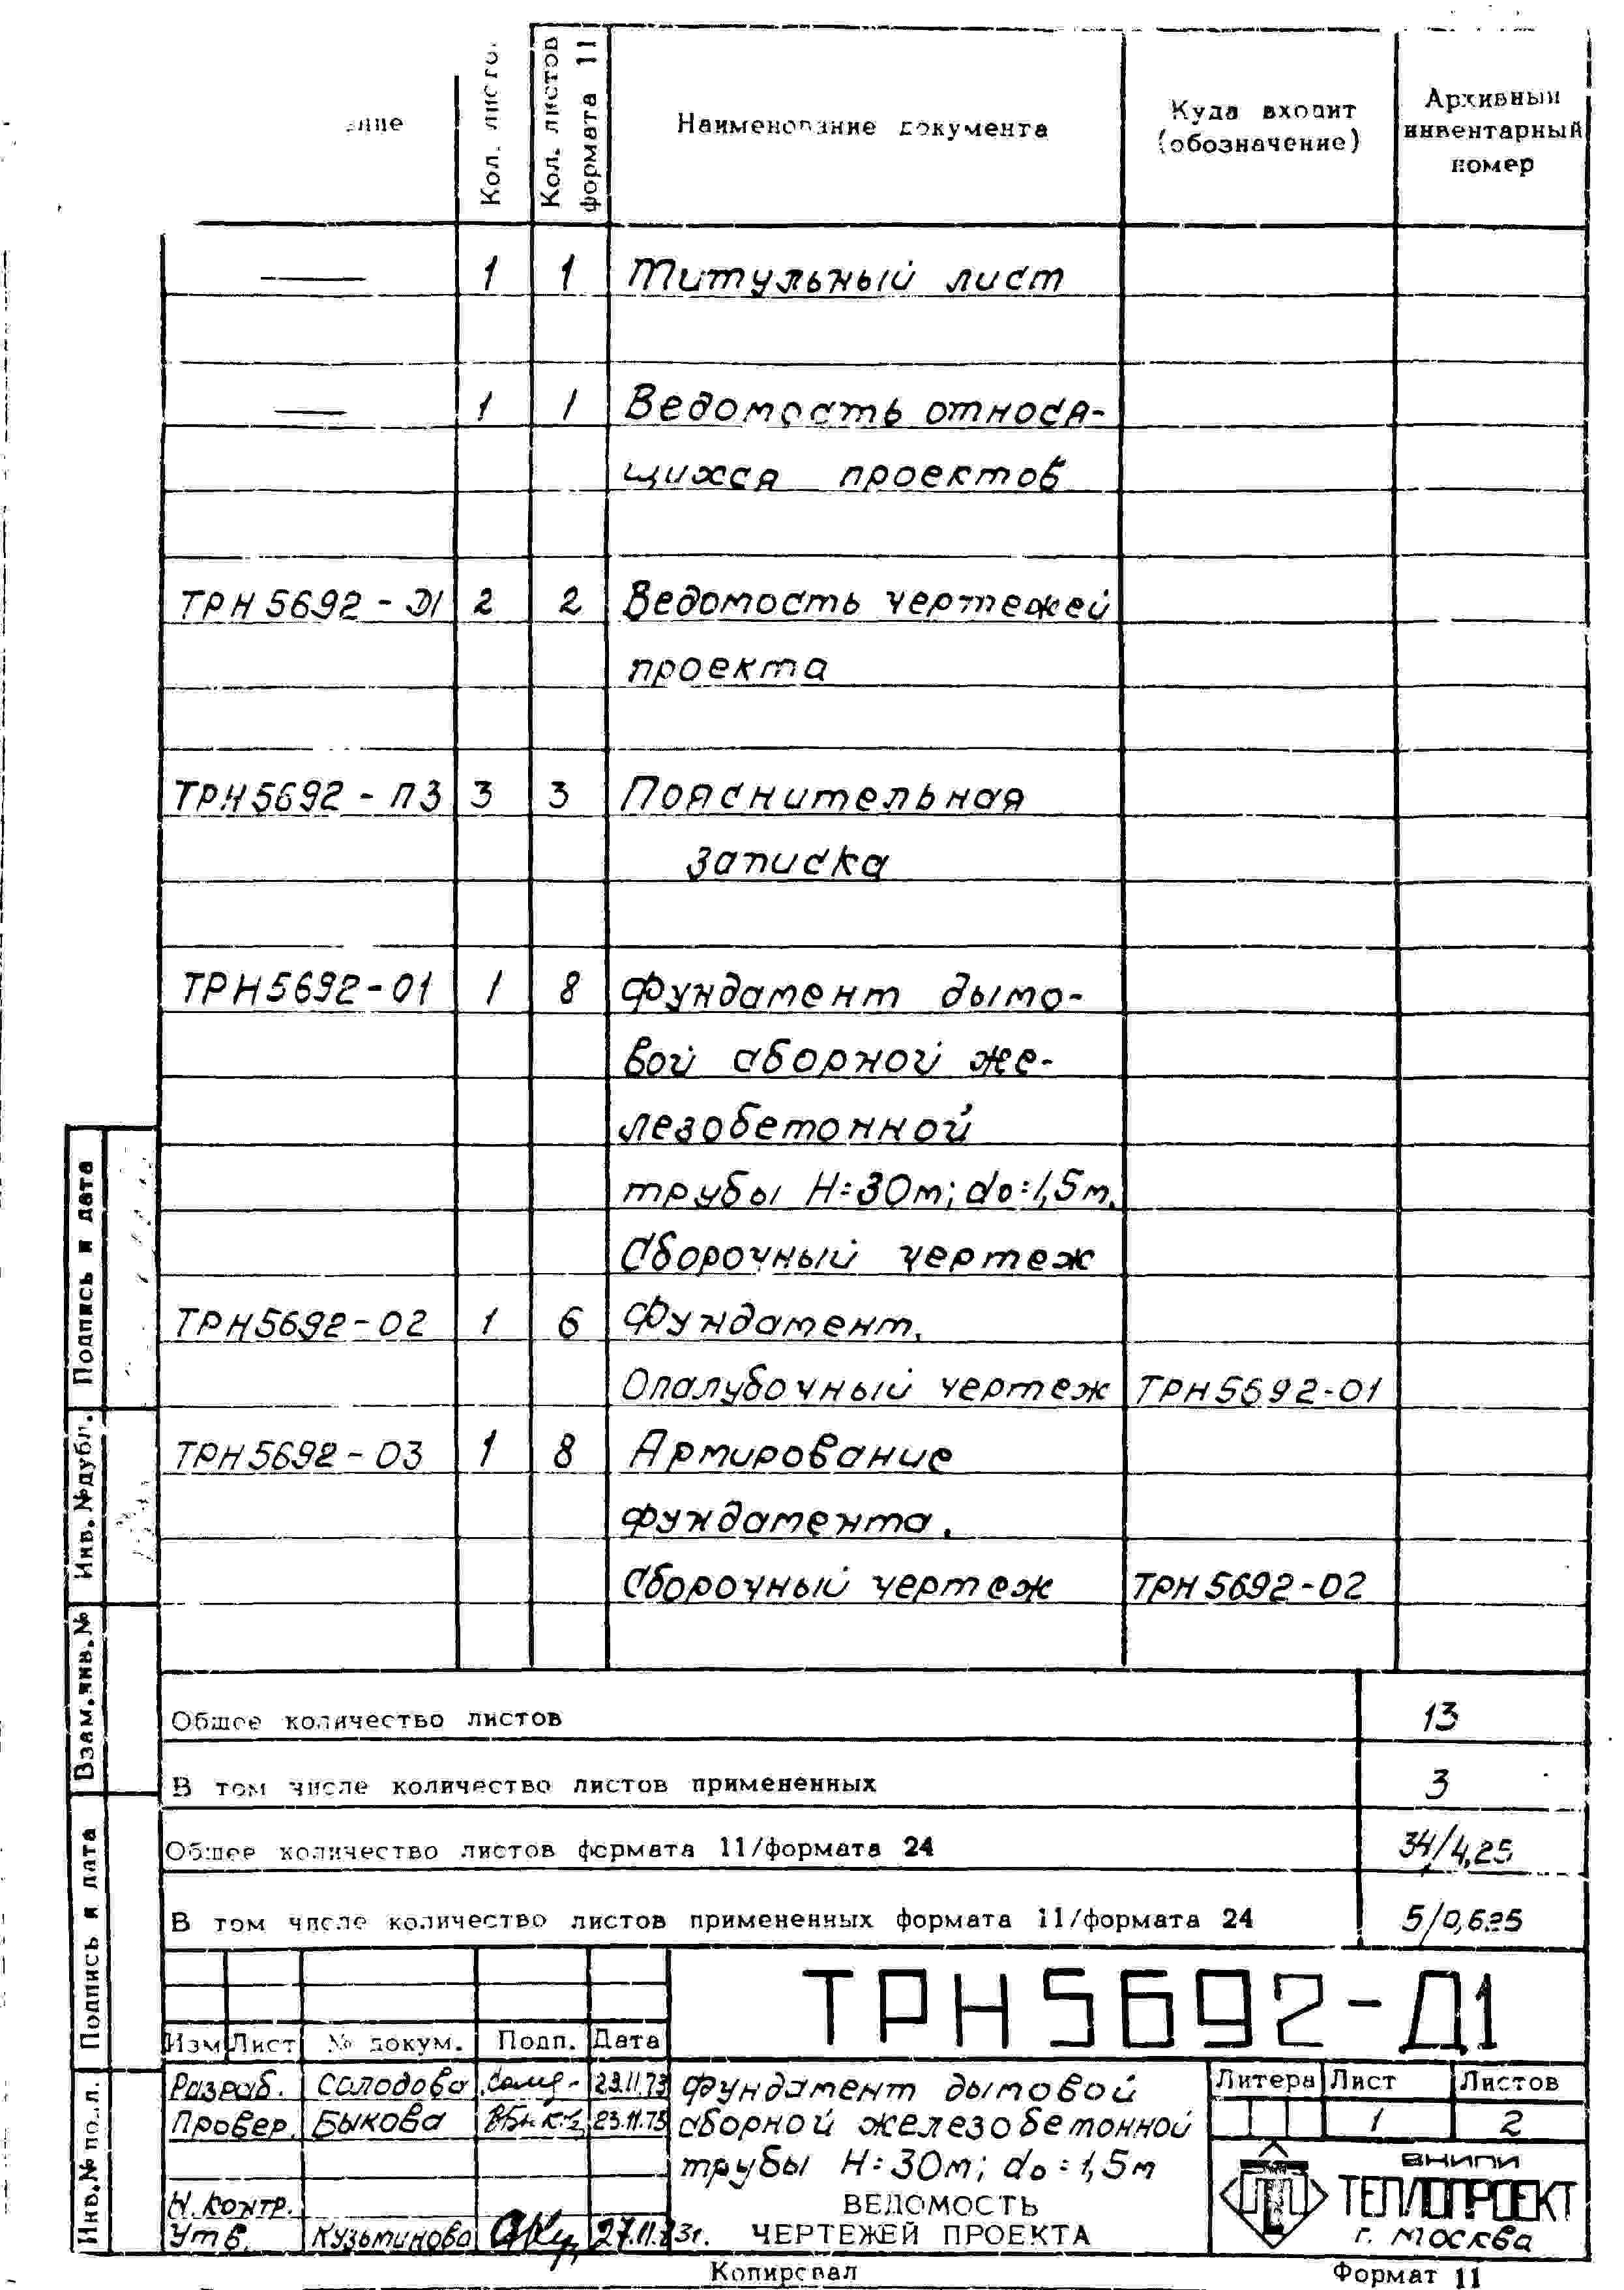 Кол. листо
Кол. листов формата 11
Наименование документа
Куда входит
(обозначение)
Архивный
инвентарный
номер
— 1 1 Титульный лист
— 1 1 Ведомость относя-
щихся проектов
ТРН5692-Д1 2 2 Ведомость чертежей
проекта
ТРН5692-ПЗ 3 3 Пояснительная
записка
ТРН5692-01 1 8 Фундамент дымо-
вой сборной же-
лезобетонной
трубы Н=30м; do=1,5м.
Сборочный чертеж
ТРН5692-02 1 6 Фундамент.
Опалубочный чертеж ТРН5692-01
ТРН5692-03 1 8 Армирование
фундамента.
Сборочный чертеж ТРН5692-02
Общее количество листов 13
В том числе количество листов примененных 3
Общее количество листов формата 11/формата 24 34/4,25
В том числе количество листов примененных формата 11/формата 24 5/0,625
Подпись и дата
Инв. № дубл.
Взам.инв.№
Подпись и дата
Инв.№ по л.
ТРН5692-Д1
Изм Лист № докум. Подп. Дата
Разраб. Солодова 23.11.73
Провер. Быкова 23.11.73
Н.контр.
Утв. Кузьминова 27.11.73г.
Фундамент дымовой
сборной железобетонной
трубы Н=30м; do=1,5м
ВЕДОМОСТЬ
ЧЕРТЕЖЕЙ ПРОЕКТА
Литера Лист Листов
1 2
ВНИПИ
ТЕПЛОПРОЕКТ
г. Москва
Копировал
Формат 11